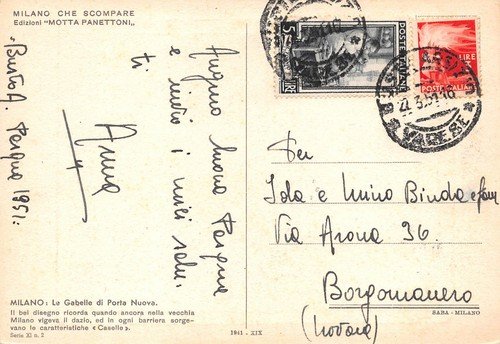 MILANO CHE SCOMPARE
Edizioni "MOTTA PANETTONI"
Busto A. Pasqua 1951.
Auguro buona Pasqua
e invio i miei salu
ti
Anna
5
LIRE
POSTE ITALIANE
LIRE
3
POSTE ITALIANE
BUSTO ARSIZIO
22.3.51.16
VARESE
Per
Isa e Mino Binda e fam
Via Arona 36.
Borgomanero
(Novara)
MILANO: Le Gabelle di Porta Nuova.
Il bel disegno ricorda quando ancora nella vecchia
Milano vigeva il dazio, ed in ogni barriera sorge-
vano le caratteristiche « Caselle ».
Serie XI n. 2
1941 - XIX
SABA - MILANO